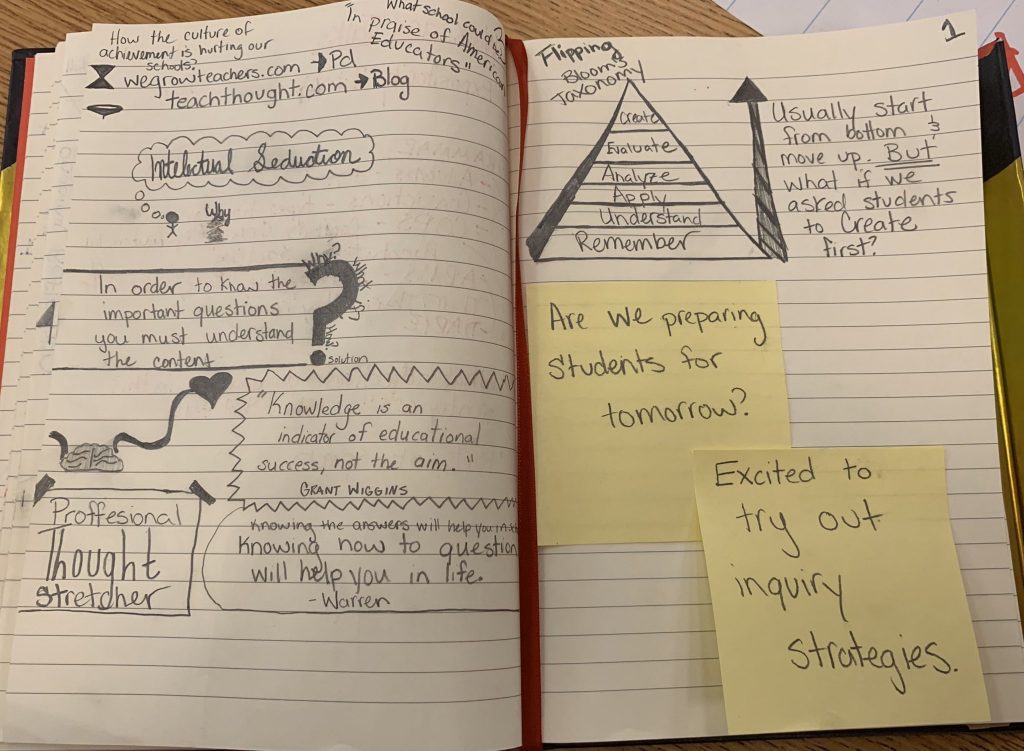 How the culture of
achievement is hurting our
schools?
wegrowteachers.com → Pd
teachthought.com → Blog
What school could be
"In praise of American
Educators"
2
Intelectual Seduction
Why
In order to know the
important questions
you must understand
the content
Why?
Solution
"Knowledge is an
indicator of educational
success, not the aim."
GRANT WIGGINS
Proffesional
Thought
stretcher
Knowing the answers will help you in
Knowing how to question
will help you in life.
-Warren
1
Flipping
Blooms
Taxonomy
Create
Evaluate
Analyze
Apply
Understand
Remember
Usually start
from bottom &
move up. But
what if we
asked students
to Create
first?
Are we preparing
students for
tomorrow?
Excited to
try out
inquiry
strategies.